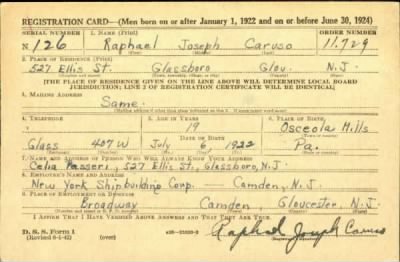 REGISTRATION CARD—(Men born on or after January 1, 1922 and on or before June 30, 1924)
SERIAL NUMBER 1. NAME (Print) ORDER NUMBER
N 126 Raphael Joseph Caruso 11,729
2. PLACE OF RESIDENCE (Print)
527 Ellis St. Glassboro Glou. N.J.
[THE PLACE OF RESIDENCE GIVEN ON THE LINE ABOVE WILL DETERMINE LOCAL BOARD
JURISDICTION; LINE 2 OF REGISTRATION CERTIFICATE WILL BE IDENTICAL]
3. MAILING ADDRESS
Same.
4. TELEPHONE 5. AGE IN YEARS 6. PLACE OF BIRTH
19 Osceola Mills
DATE OF BIRTH
Glass 407W July 6, 1922 Pa.
7. NAME AND ADDRESS OF PERSON WHO WILL ALWAYS KNOW YOUR ADDRESS
Celia Passeri, 527 Ellis St., Glassboro, N.J.
8. EMPLOYER'S NAME AND ADDRESS
New York Shipbuilding Corp. — Camden, N.J.
9. PLACE OF EMPLOYMENT OR BUSINESS
Broadway Camden, Gloucester, N.J.
I AFFIRM THAT I HAVE VERIFIED ABOVE ANSWERS AND THAT THEY ARE TRUE.
D. S. S. Form 1
(Revised 6-1-42) (over)
Raphael Joseph Caruso